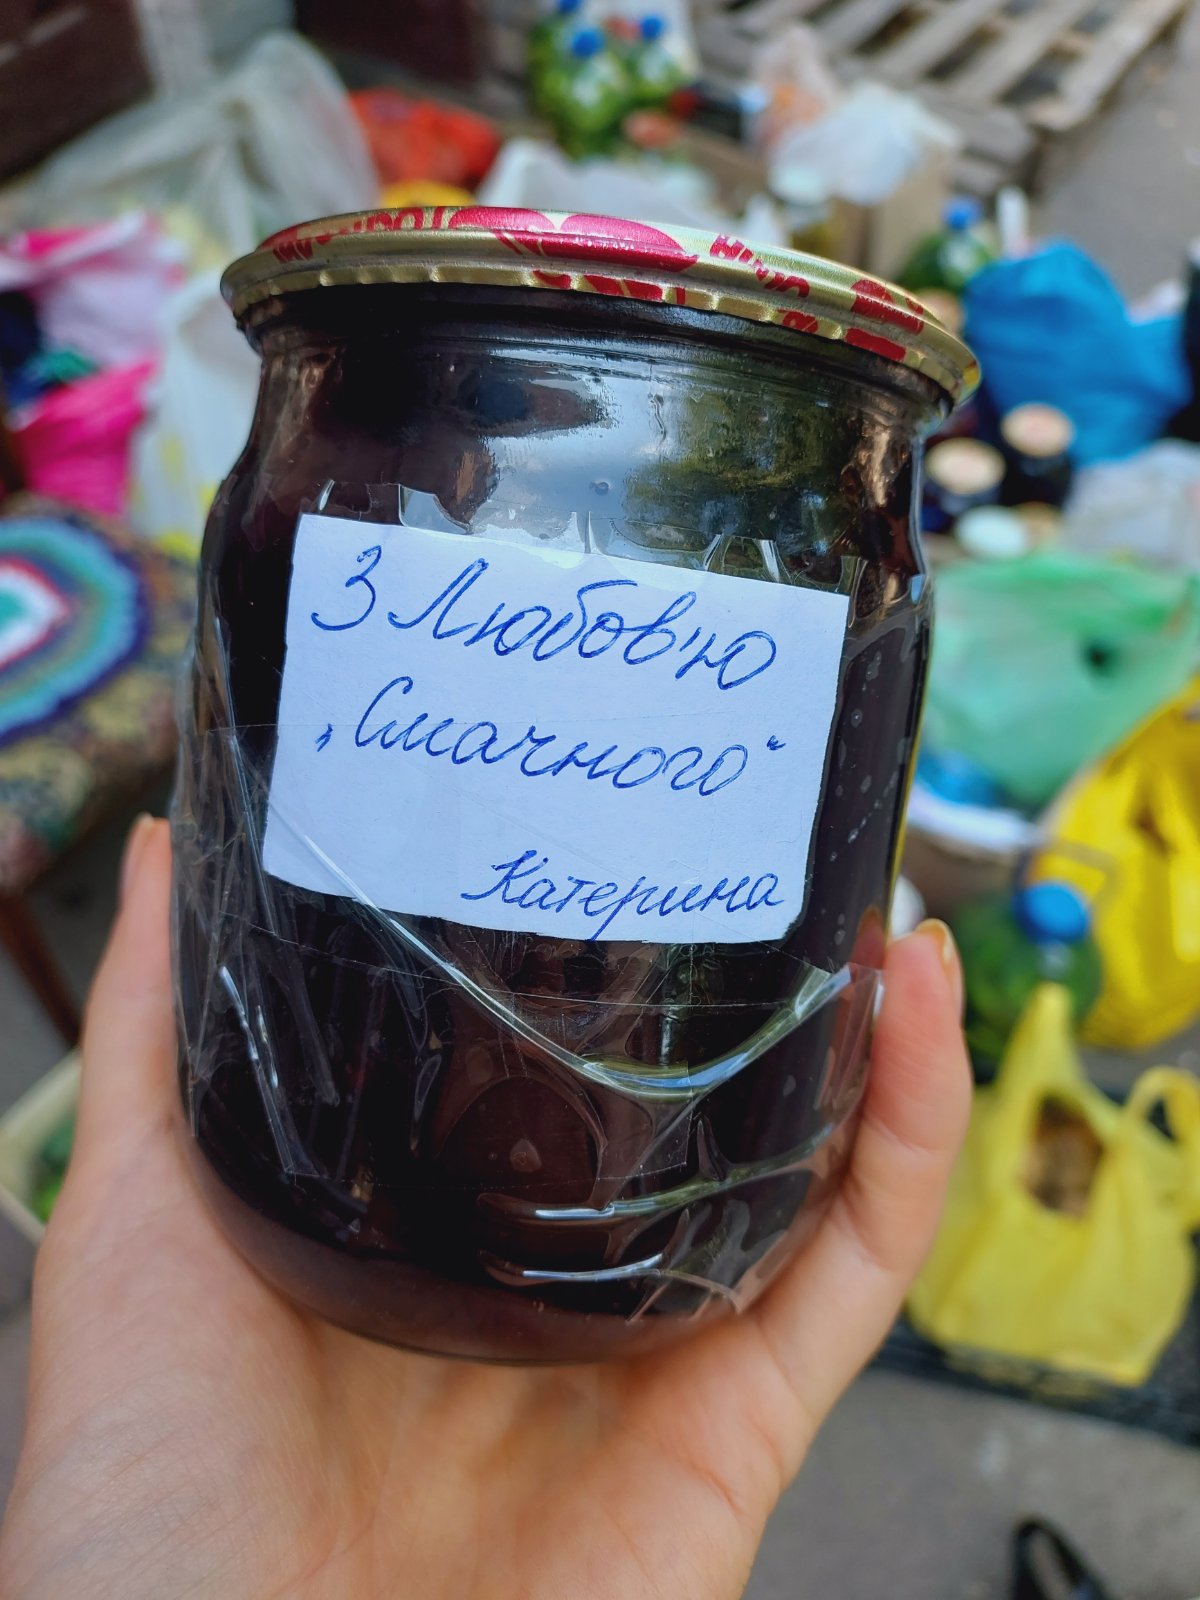 З Любов'ю
„Смачного“
Катерина